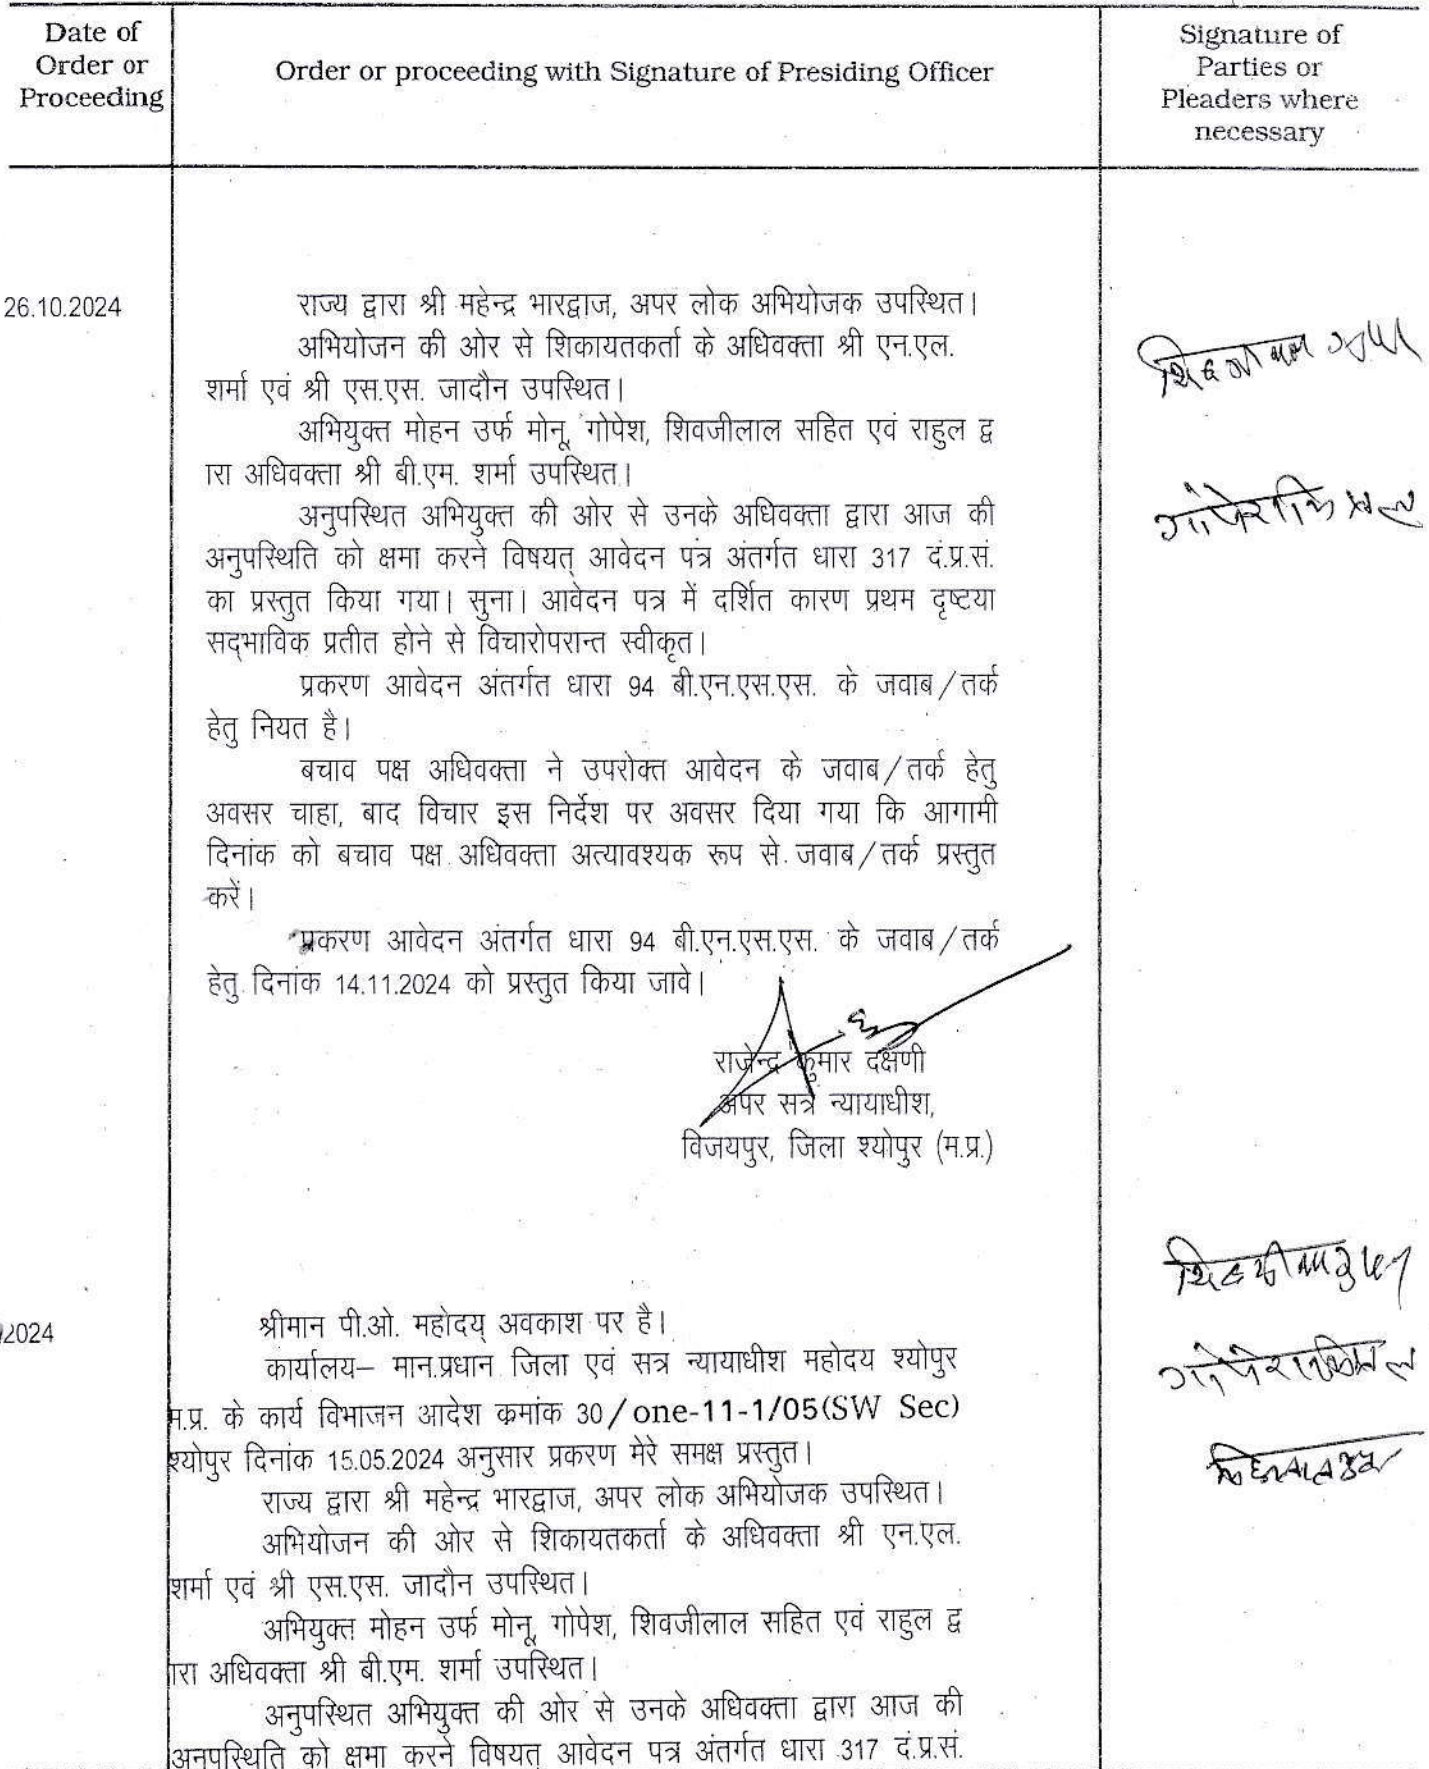 Date of
Order or
Proceeding
Order or proceeding with Signature of Presiding Officer
Signature of
Parties or
Pleaders where
necessary
26.10.2024
राज्य द्वारा श्री महेन्द्र भारद्वाज, अपर लोक अभियोजक उपस्थित।
अभियोजन की ओर से शिकायतकर्ता के अधिवक्ता श्री एन.एल.
शर्मा एवं श्री एस.एस. जादौन उपस्थित।
अभियुक्त मोहन उर्फ मोनू, गोपेश, शिवजीलाल सहित एवं राहुल द्व
ारा अधिवक्ता श्री बी.एम. शर्मा उपस्थित।
अनुपस्थित अभियुक्त की ओर से उनके अधिवक्ता द्वारा आज की
अनुपस्थिति को क्षमा करने विषयत् आवेदन पत्र अंतर्गत धारा 317 दं.प्र.सं.
का प्रस्तुत किया गया। सुना। आवेदन पत्र में दर्शित कारण प्रथम दृष्टया
सद्भाविक प्रतीत होने से विचारोपरान्त स्वीकृत।
प्रकरण आवेदन अंतर्गत धारा 94 बी.एन.एस.एस. के जवाब/तर्क
हेतु नियत है।
बचाव पक्ष अधिवक्ता ने उपरोक्त आवेदन के जवाब/तर्क हेतु
अवसर चाहा, बाद विचार इस निर्देश पर अवसर दिया गया कि आगामी
दिनांक को बचाव पक्ष अधिवक्ता अत्यावश्यक रूप से जवाब/तर्क प्रस्तुत
करें।
प्रकरण आवेदन अंतर्गत धारा 94 बी.एन.एस.एस. के जवाब/तर्क
हेतु दिनांक 14.11.2024 को प्रस्तुत किया जावे।
राजेन्द्र कुमार दक्षणी
अपर सत्र न्यायाधीश,
विजयपुर, जिला श्योपुर (म.प्र.)
2024
श्रीमान पी.ओ. महोदय् अवकाश पर है।
कार्यालय– मान.प्रधान जिला एवं सत्र न्यायाधीश महोदय श्योपुर
म.प्र. के कार्य विभाजन आदेश क्रमांक 30/one-11-1/05(SW Sec)
श्योपुर दिनांक 15.05.2024 अनुसार प्रकरण मेरे समक्ष प्रस्तुत।
राज्य द्वारा श्री महेन्द्र भारद्वाज, अपर लोक अभियोजक उपस्थित।
अभियोजन की ओर से शिकायतकर्ता के अधिवक्ता श्री एन.एल.
शर्मा एवं श्री एस.एस. जादौन उपस्थित।
अभियुक्त मोहन उर्फ मोनू, गोपेश, शिवजीलाल सहित एवं राहुल द्व
ारा अधिवक्ता श्री बी.एम. शर्मा उपस्थित।
अनुपस्थित अभियुक्त की ओर से उनके अधिवक्ता द्वारा आज की
अनुपस्थिति को क्षमा करने विषयत् आवेदन पत्र अंतर्गत धारा 317 दं.प्र.सं.